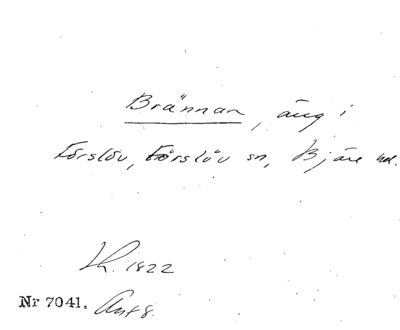 Brännan, äng i
Förslöv, Förslöv sn, Bjäre hd.
Lh. 1822
Nr 7041. Ant 8.